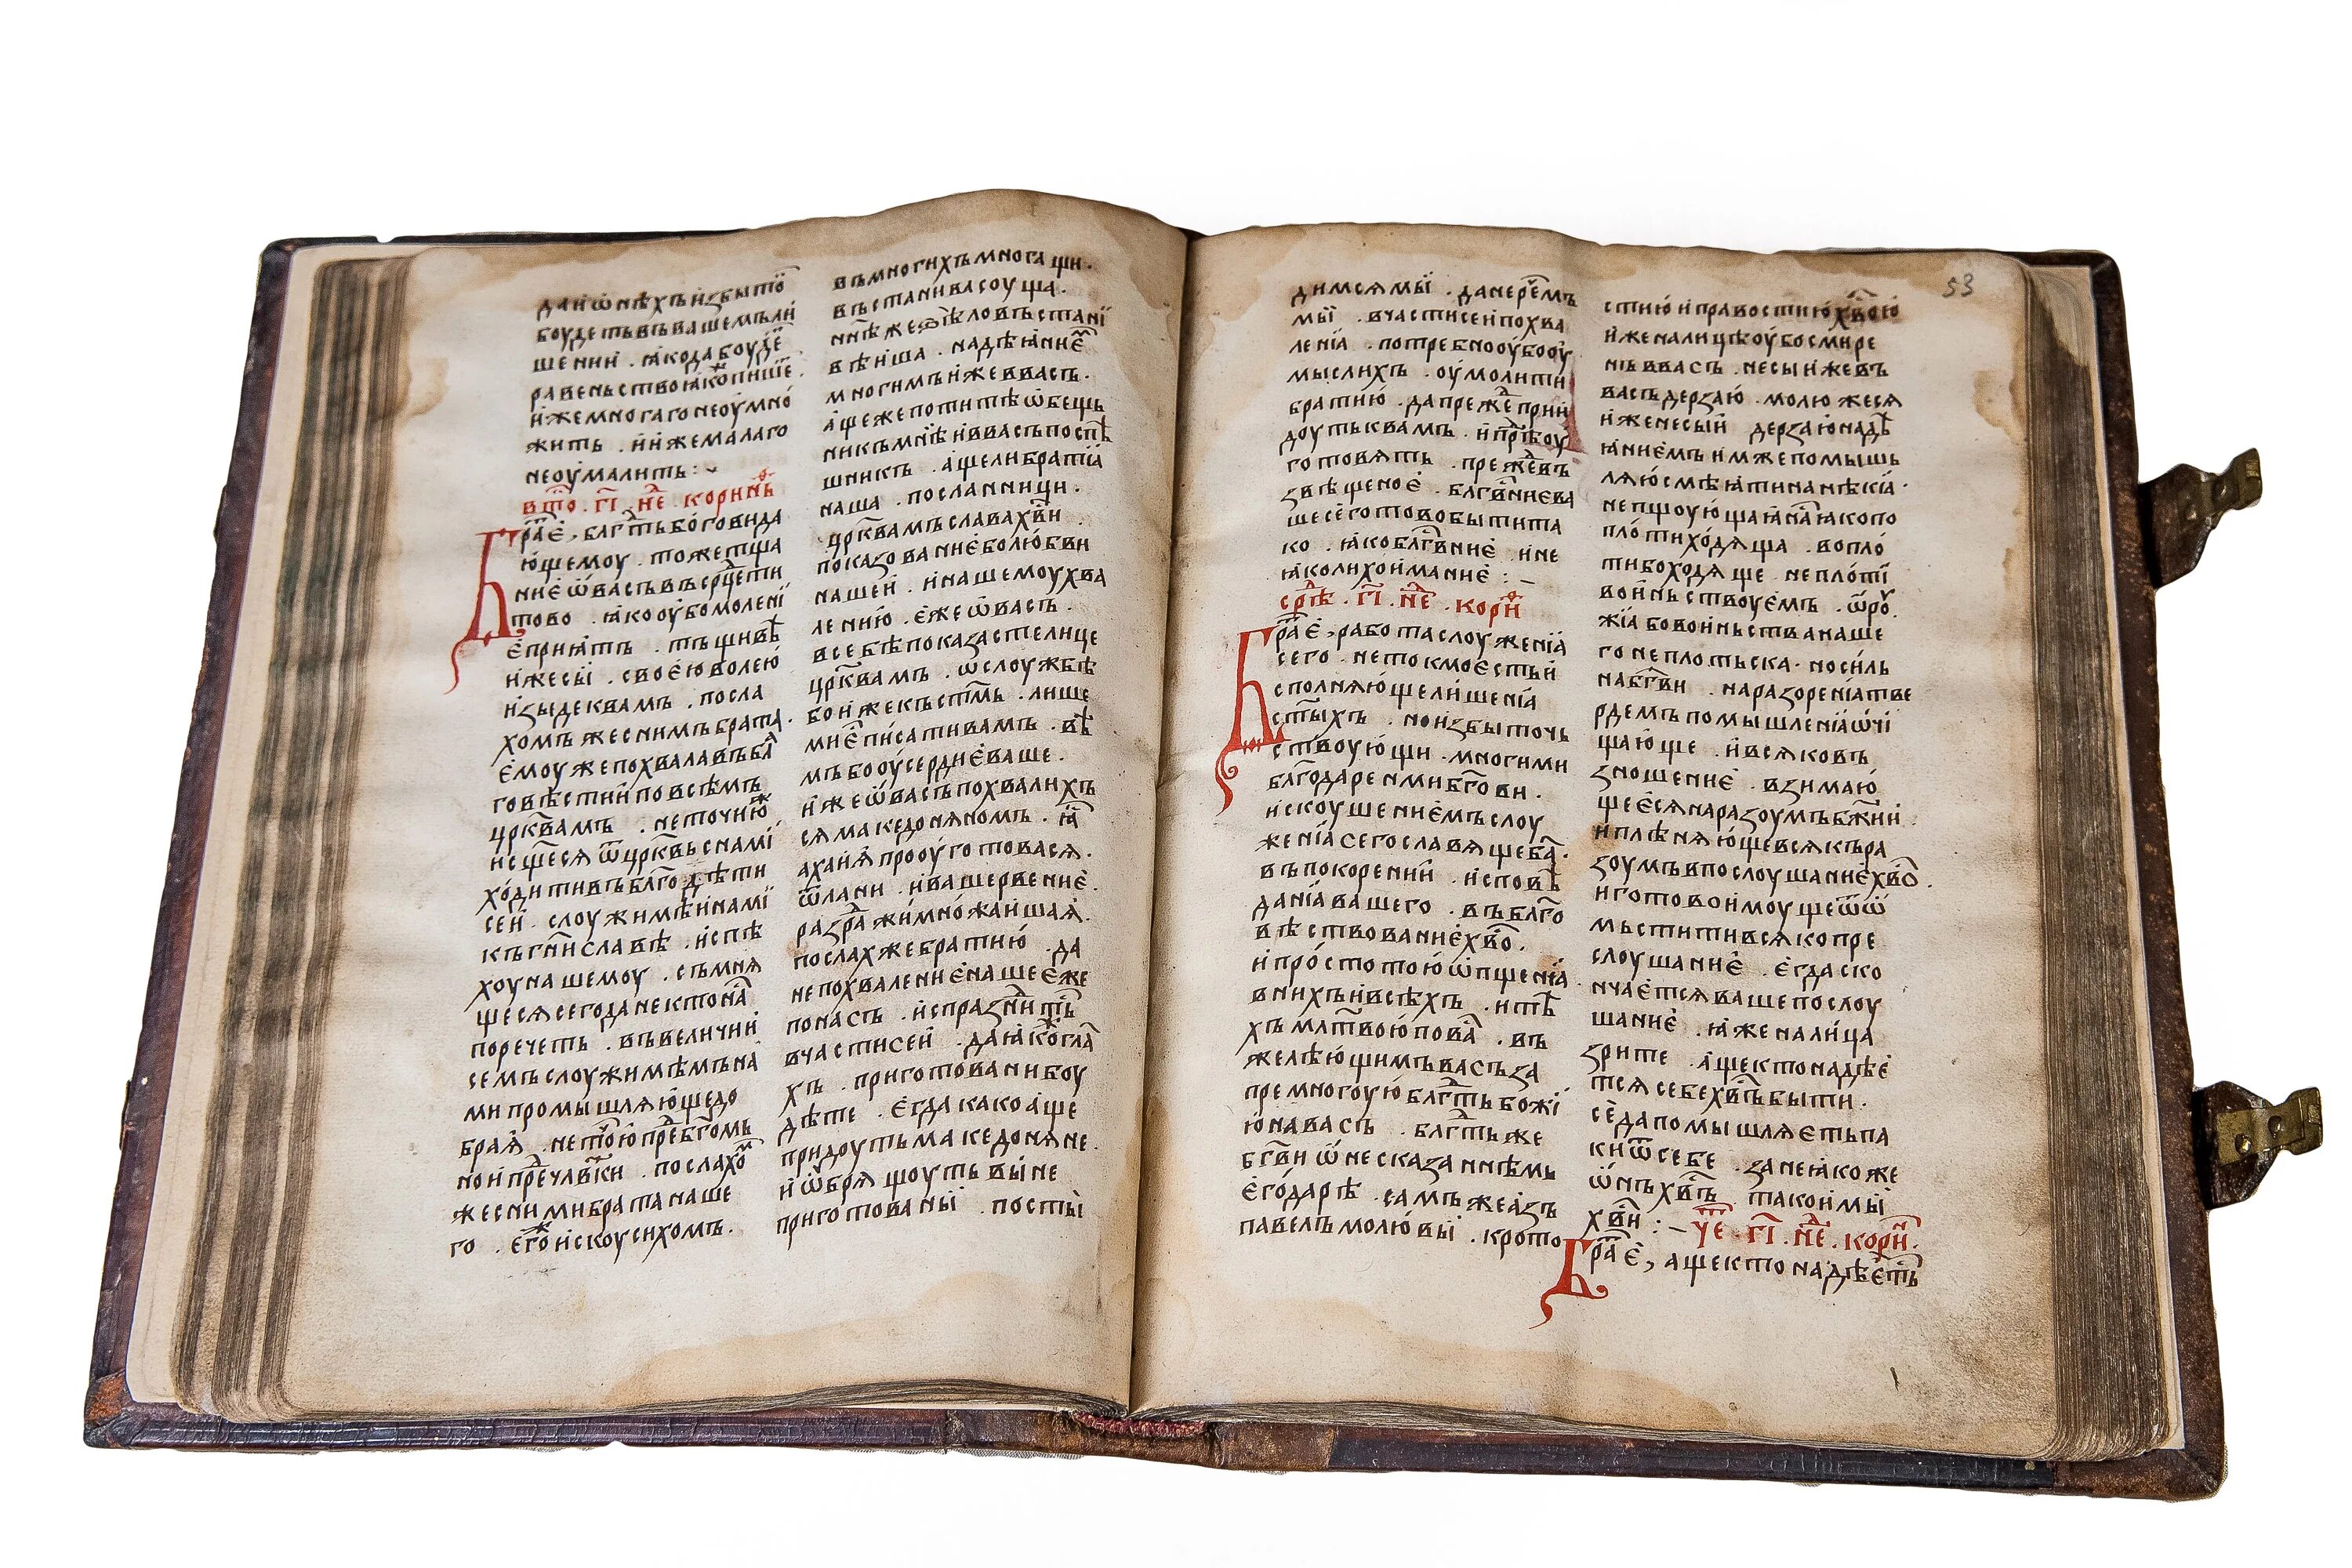 даи҆ѡ҆нѣхъи҆збыто
боудетьвъвашемъли
шении . ꙗ҆кодабоуде
равеньствоꙗ҆копише .
и҆жемногагонеоу҆мно
жить . и҆и҆жемалаго
неоу҆малить :
вто . гі . не . корин
Бра́е , блг҃тьбоговида
ю҆щемоу . тожетща
ниеѿвасъвъсрцети
тово . ꙗ҆кооу҆бомолені
е҆приꙗ҆тъ . тъщивѣ
и҆жесыи . своеюволею
и҆зыдеквамъ . посла
хомъжеснимъбрата .
е҆моужепохвалавъбл҃
говѣстиипов̾сѣмъ
црк҃вамъ . неточию
и҆сщесяѿцрк҃вьснамі
ходитивъблг҃одѣти
сеи . слоужимѣи҆намі
къгн҃иславѣ . и҆спѣ
хоунашемоу . съмня
щесясегоданектона
поречеть . въвеличии
семъслоужимѣмъна
мипромышляющедо
брая . нетоюпреб҃гомь
нои҆пречл҃вки . послахо
жеснимибратанаше
го . е҆гожеи҆скоусихомъ .
въмногихъмногащи .
въстанивасоуща .
нн҃ѣжеѕѣловъстані
вѣи҆ша . надѣꙗ҆ние
многимъи҆жеввасъ .
а҆щежепотитѣѡ҆бещь
никъмнѣи҆ввасъпоспѣ
шникъ . а҆щелибратіа
наша . посланници .
црк҃вамъславахв҃и
показованиеболюбви
нашеи . и҆нашемоухва
лению . е҆жеѿвасъ .
всебѣпоказастелице
црк҃вамъ . ѡ҆слоужбѣ
бои҆жекъст҃мь . лише
мнѣеписативамъ . вѣ
мъбооу҆сердиеваше .
и҆жеѿвасъпохвалихъ
сямакедоняномъ . ꙗ҆
ахаиꙗ҆прооу҆готовася .
ѿлани . и҆вашервение .
раздражимножаишая .
послахжебратию . да
непохвалениенашееже
понасъ . и҆спразнить
вчастисеи . даꙗ҆коглаг
хъ . приготованибоу
дѣте . е҆гдакакоа҆ще
придоутьмакедоняне .
и҆ѡ҆брящоутьвыне
приготованы . посты
53
димсямы . данеречемъ
мы . вчастисеи҆похва
ленія . потребнооу҆бооу҆
мыслихъ . оу҆молити
братию . дапрежеприи
доутьквамъ . и҆предоу
готовять . прежевъ
звѣщеное . блг҃вниева
шесеготовобытита
ко . ꙗ҆коблг҃вние . и҆не
ꙗ҆колихоиманиe : –
сре . гі . не . кори
Бра́е , работаслоуженія
сего . нетокмоестьи
сполняющелишенія
ст҃ыхъ . нои҆збыточь
ствоующи . многими
благодаренмибг҃ови .
и҆скоушениемъслоу
женіасегославящеба .
въпокорении . и҆сповѣ
даніавашего . въблг҃о
вѣствованиехв҃о .
и҆простотоюѡ҆пщенія
внихъи҆всѣхъ . и҆тѣ
хъмлт҃воюпова . въ
желѣющимъвасъза
премногоуюблгт҃ьбожі
ю҆навасъ . блгт҃ьже
бг҃виѡ҆несказаннѣмь
е҆годарѣ . самъжеазъ
павелъмолювы . крото
стиюи҆правостиюхв҃ою
и҆женалицѣоу҆босмире
нъввасъ . несыи҆жевъ
васъдерзаю . молюжеся
и҆женесыи дерзаюнадѣ
ꙗ҆ниемъи҆мжепомышь
ляюсмѣꙗ҆тинанѣкіа .
непщоующаꙗ҆наꙗ҆копо
плотиходяща . вопло
тибоходяще неплоті
вои҆ньствоуемъ . ѡ҆ро .
жіабовои҆ньстванаше
гонеплотьска . носиль
набг҃ви . наразореніатве
рдемъпомышленіаѡ҆чі
щающе . и҆всяковъ
зношение . взимаю
щеесянаразоумъбж҃ии .
и҆плѣняющевсякъра
зоумъвпослоушаниехв҃о .
и҆готовои҆моущеѿѡ
мьститивсякопре
слоушание . е҆гдаско
нчаетсявашепослоу
шание . ꙗ҆женалица
зрите . а҆щектонадѣе
тсясебехв҃ъбыти .
седапомышляетьпа
киѿсебе . занеꙗ҆коже
ѡ҆нъхв҃ъ такои҆мы
хв҃и : – че . гі . не . кори .
Бра́е , ащектонадѣеть